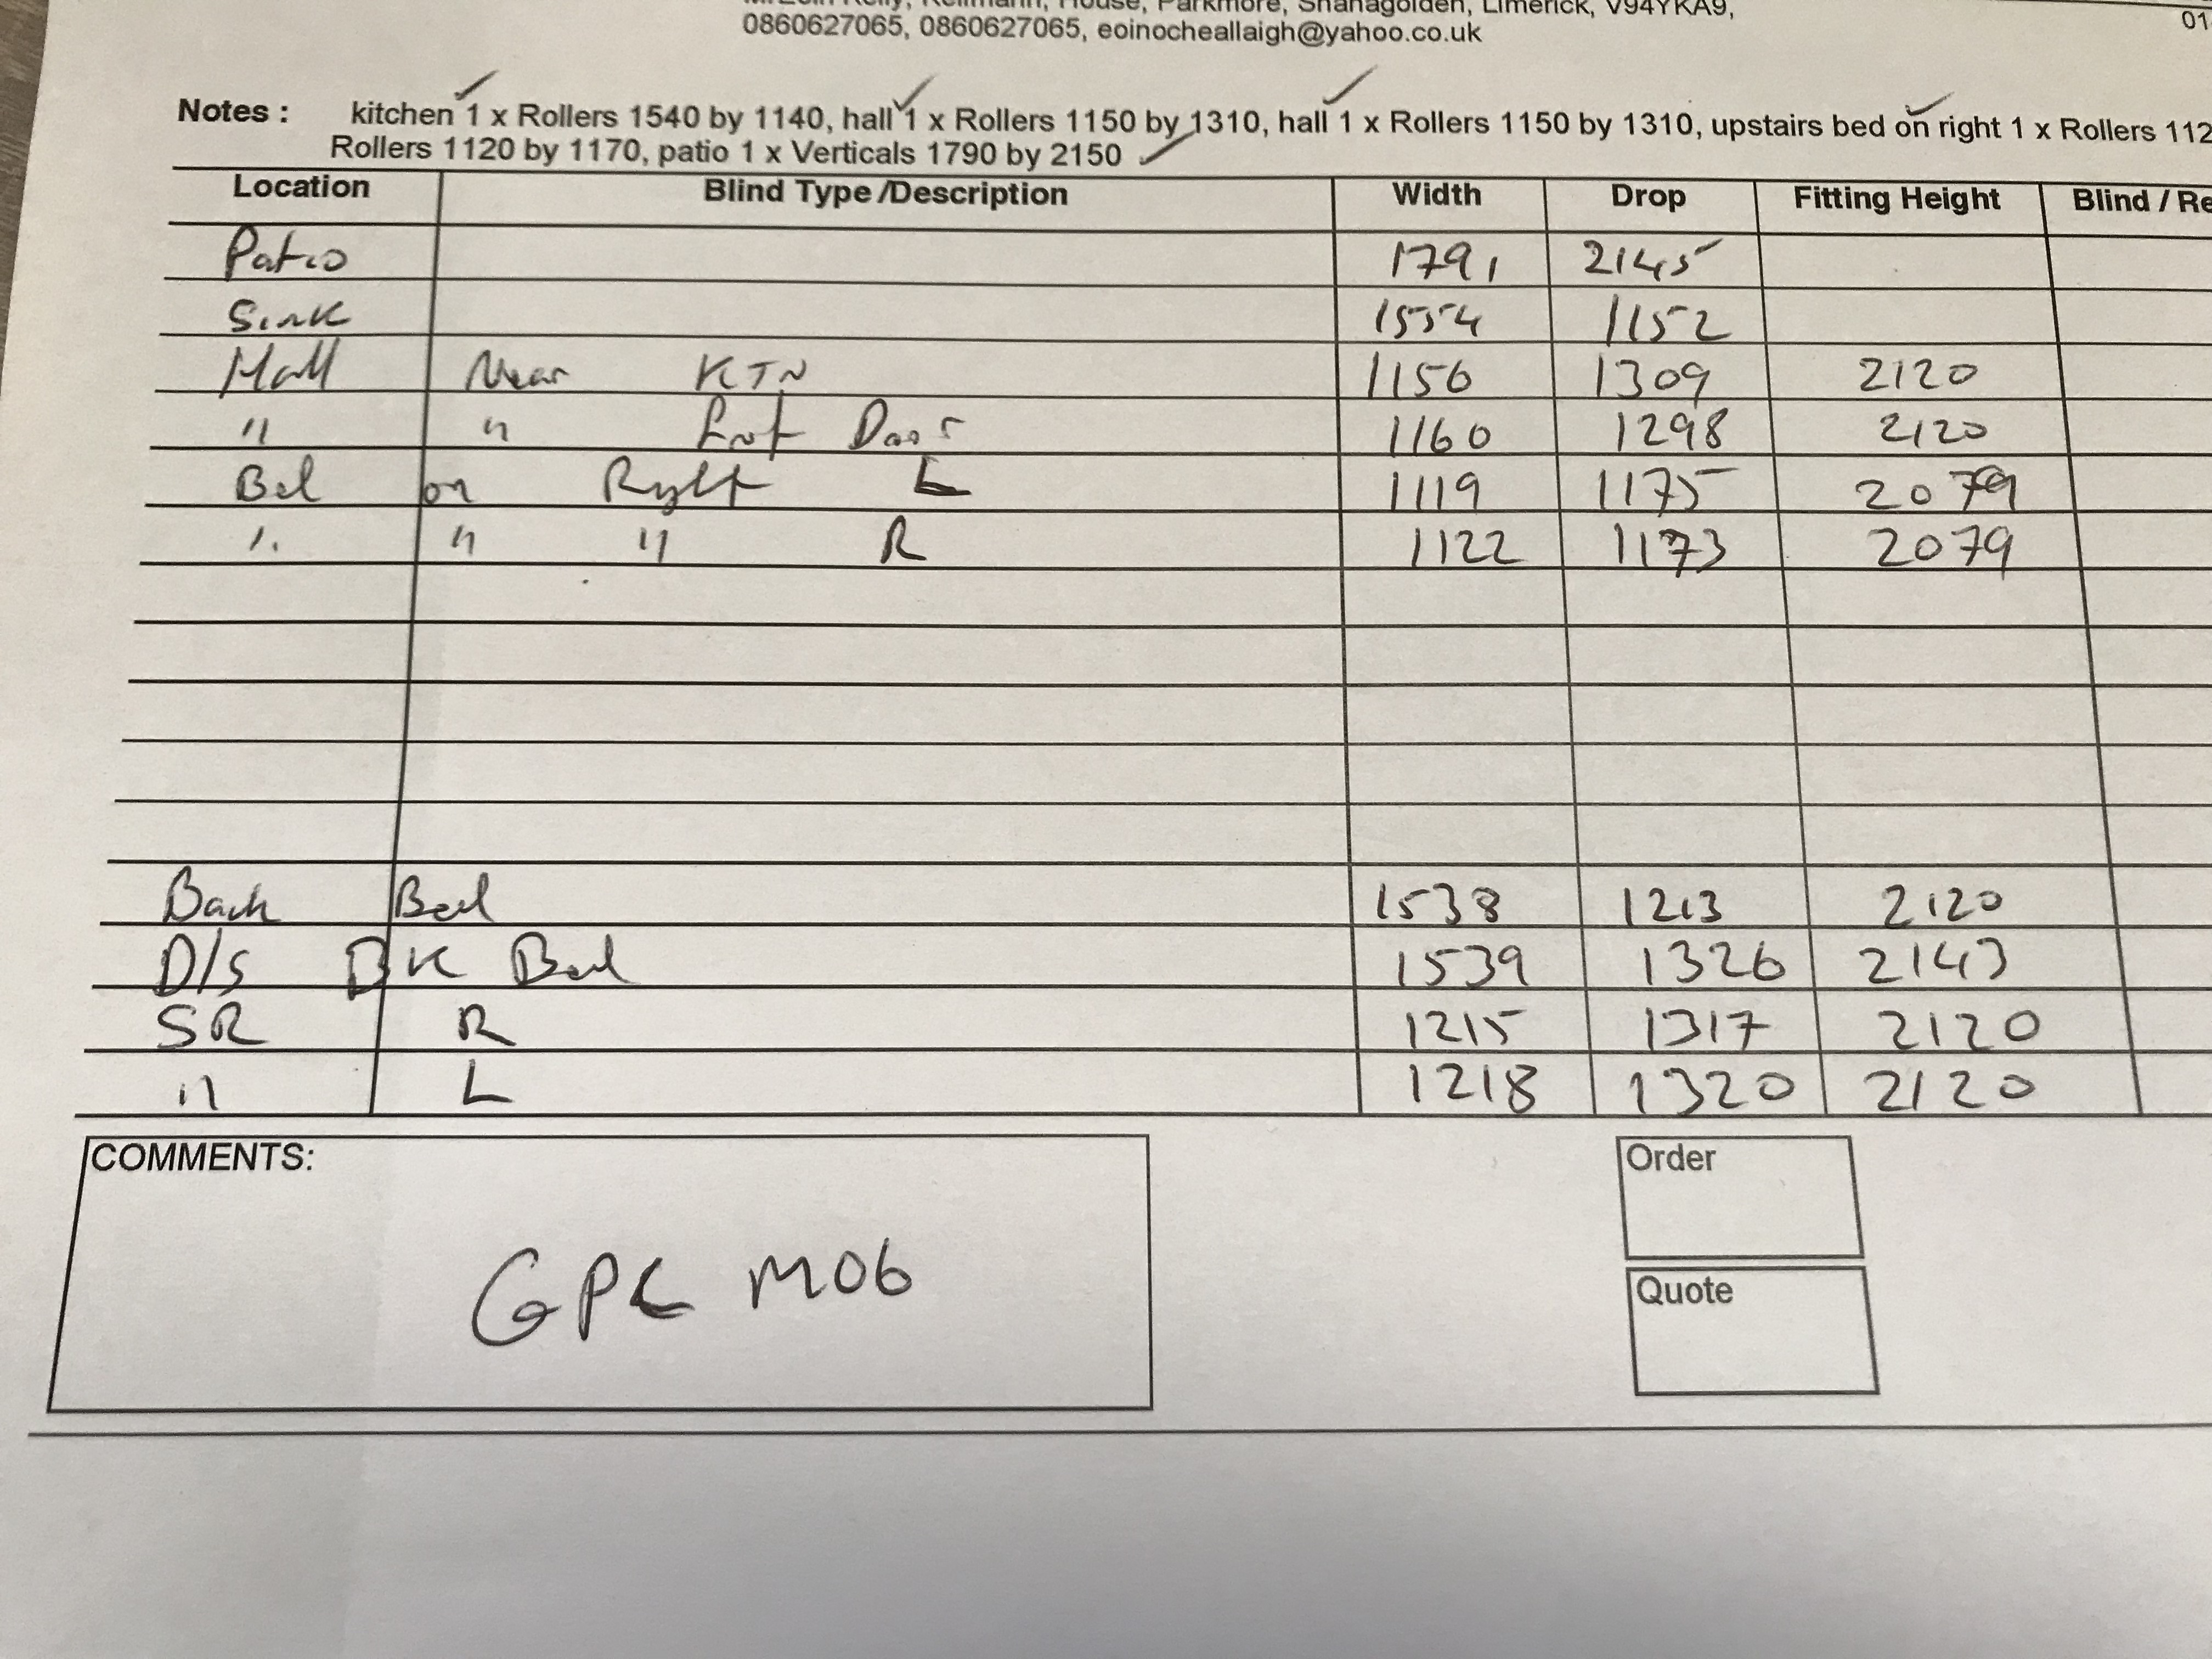 House, Parkmore, Shanagolden, Limerick, V94YKA9,
01
0860627065, 0860627065, eoinocheallaigh@yahoo.co.uk
Notes : kitchen 1 x Rollers 1540 by 1140, hall 1 x Rollers 1150 by 1310, hall 1 x Rollers 1150 by 1310, upstairs bed on right 1 x Rollers 112
Rollers 1120 by 1170, patio 1 x Verticals 1790 by 2150
Location Blind Type /Description Width Drop Fitting Height Blind / Re
Patio 1791 2145
Sink 1554 1152
Hall Near KTN 1156 1309 2120
" " Frnt Door 1160 1298 2120
Bed on Right L 1119 1175 2079
" " " R 1122 1173 2079
Back Bed 1538 1213 2120
D/S BK Bed 1539 1326 2143
SR R 1215 1317 2120
" L 1218 1320 2120
COMMENTS:
Order
GPC M06
Quote